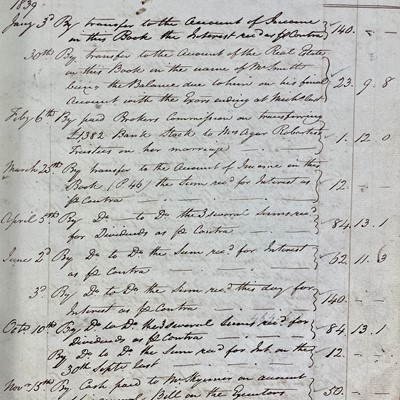 1839
Jany 3d By transfer to the Account of Income
in this Book the Interest recd as p Contra 140. — —
30th By transfer to the Account of the Real Estate
in this Book in the name of Mr Smith
being the Balance due to him on his final
Account with the Exors ending at Michs last 23. 9. 8
Feby 6th By paid Brokers Commission on transferring
£1382 Bank Stock to Mrs Agar Robartes
Trustees on her marriage 1. 12. 0
March 25th By transfer to the Account of Income in this
Book (P 46) the Sum recd for Interest as
p Contra 12. — —
April 5th By Do to Do the 3 several Sums recd
for Dividends as p Contra 84. 13. 1
June 2d By Do to Do the Sum recd for Interest
as p Contra 62. 11. 3
3d By Do to Do the Sum recd this day for
Interest as p Contra 140. — —
Octr 10th By Do to Do the 3 several Sums recd for
Dividends as p Contra 84. 13. 1
By Do to Do the Sum recd for Int. on the
30th Septr last 12. — —
Novr 15th By Cash paid to Mr Skynner on account
Bill on the Executors 50. — —